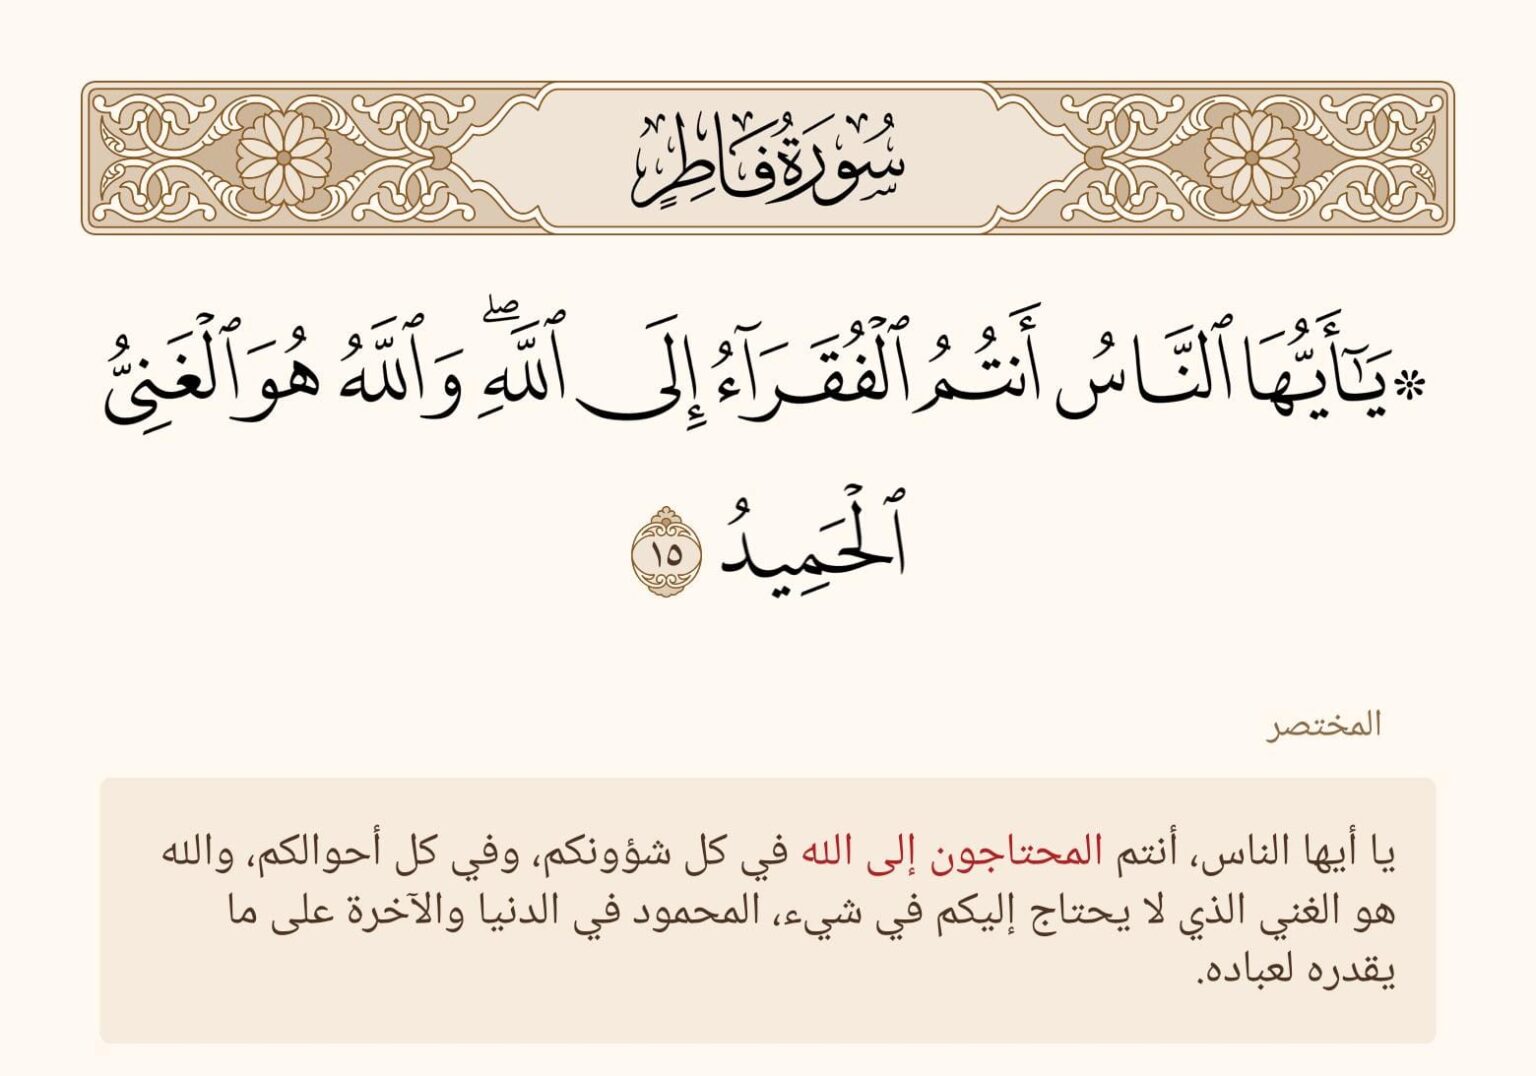 سُورَةُ فَاطِرٍ
۞ يَـٰٓأَيُّهَا ٱلنَّاسُ أَنتُمُ ٱلْفُقَرَآءُ إِلَى ٱللَّهِ ۖ وَٱللَّهُ هُوَ ٱلْغَنِىُّ
ٱلْحَمِيدُ ١٥
المختصر
يا أيها الناس، أنتم المحتاجون إلى الله في كل شؤونكم، وفي كل أحوالكم، والله
هو الغني الذي لا يحتاج إليكم في شيء، المحمود في الدنيا والآخرة على ما
يقدره لعباده.